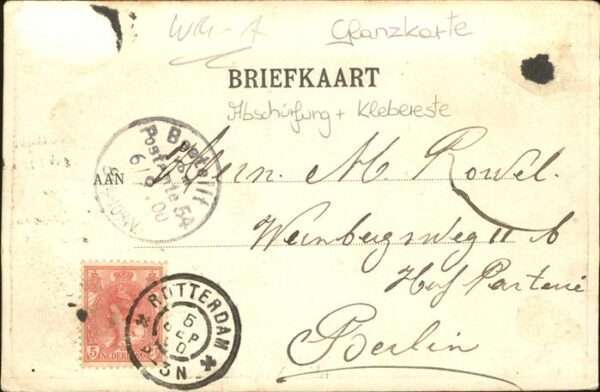 Glanzkarte
BRIEFKAART
Abschürfung + Klebereste
Bestellt
Postamte 54
6/9.00
AAN
Herrn M. Rowel.
Weinbergsweg 11 b
Hof Parterre
Berlin
5 NEDERLAND
ROTTERDAM
5
SEP